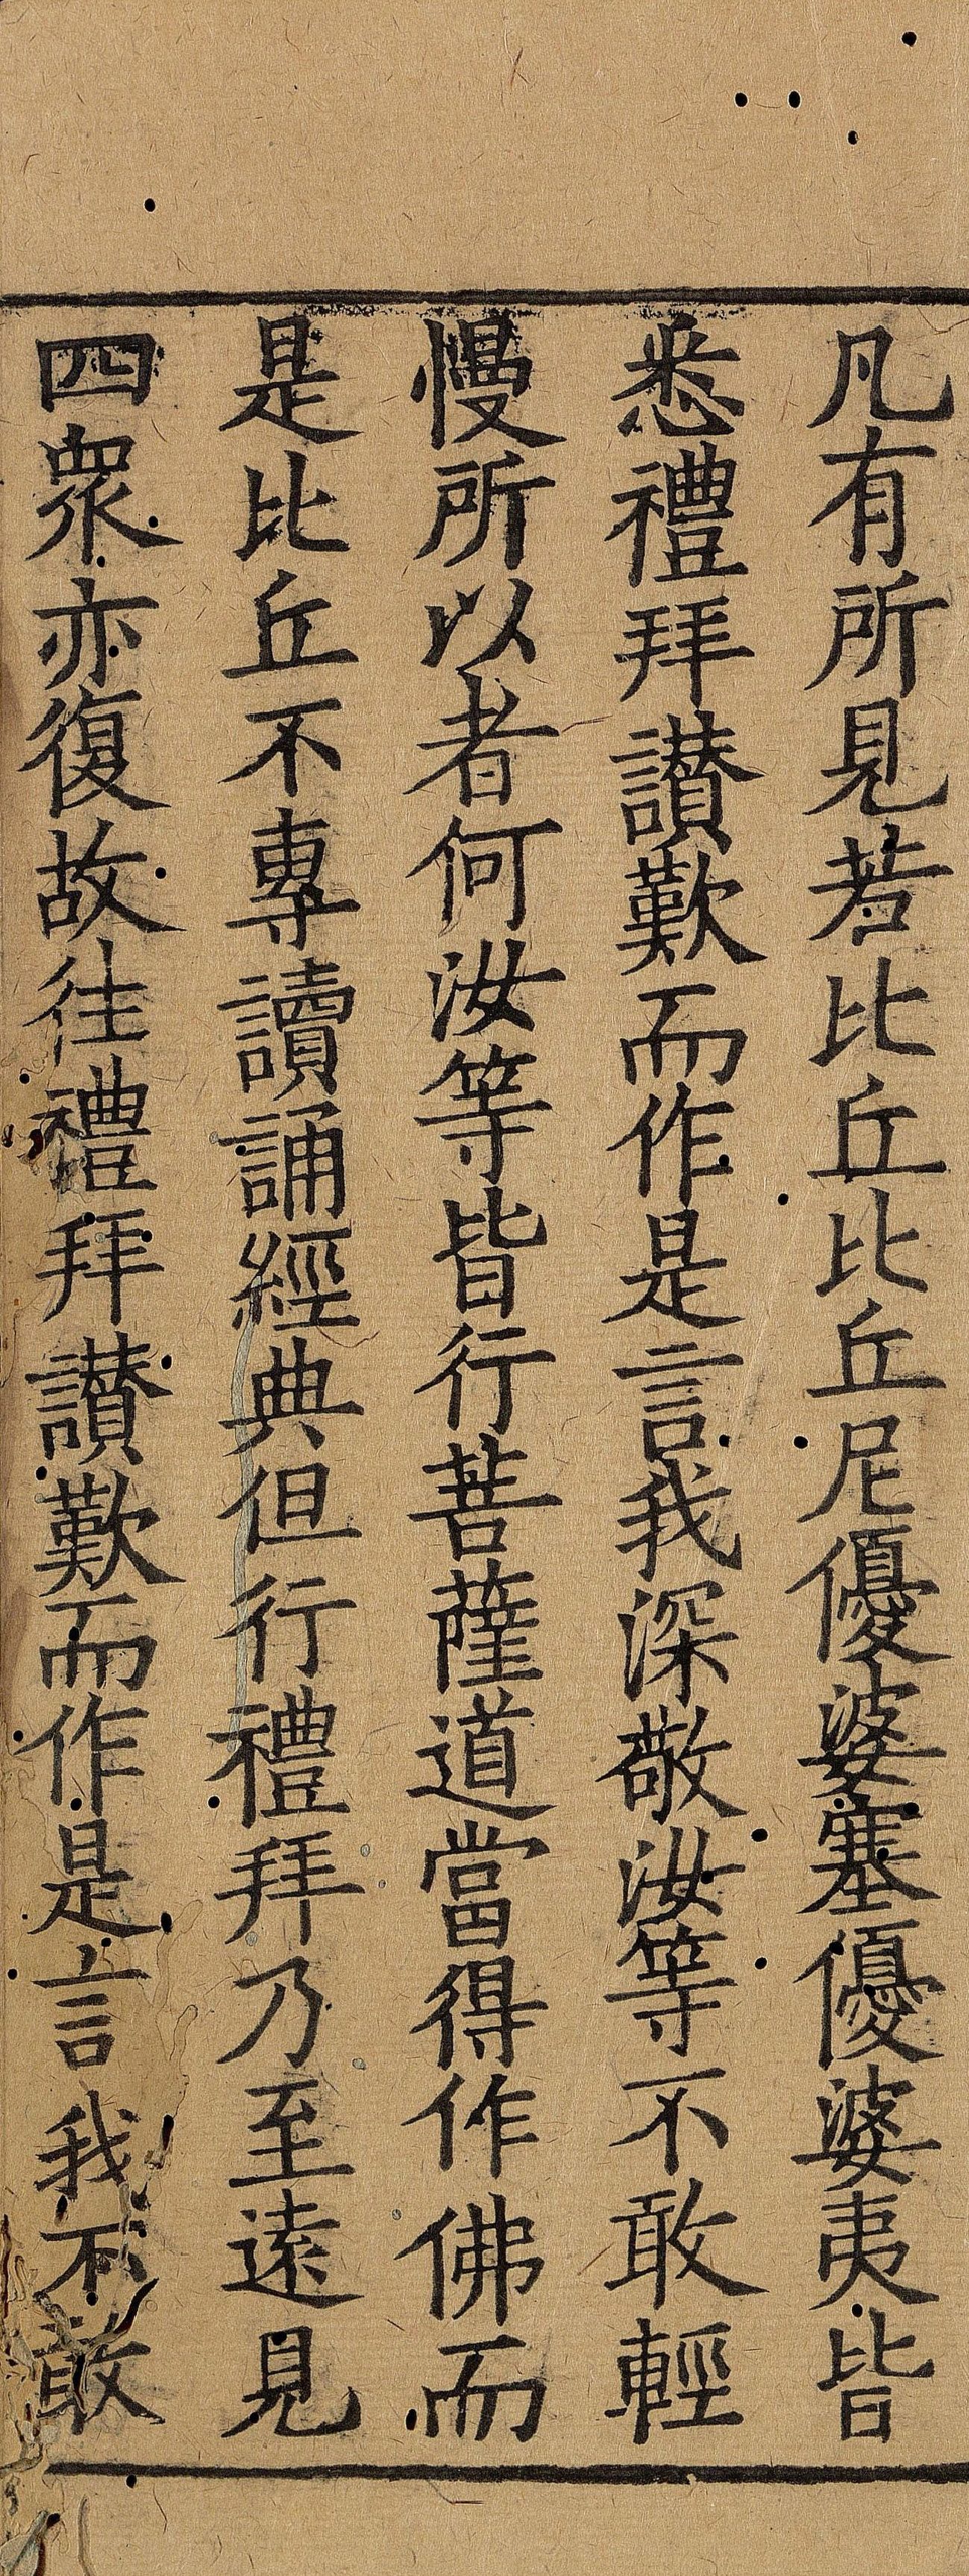 凡有所見若比丘比丘尼優婆塞優婆夷皆
悉禮拜讃歎而作是言我深敬汝等不敢輕
慢所以者何汝等皆行菩薩道當得作佛而
是比丘不專讀誦經典但行禮拜乃至遠見
四衆亦復故往禮拜讃歎而作是言我不敢